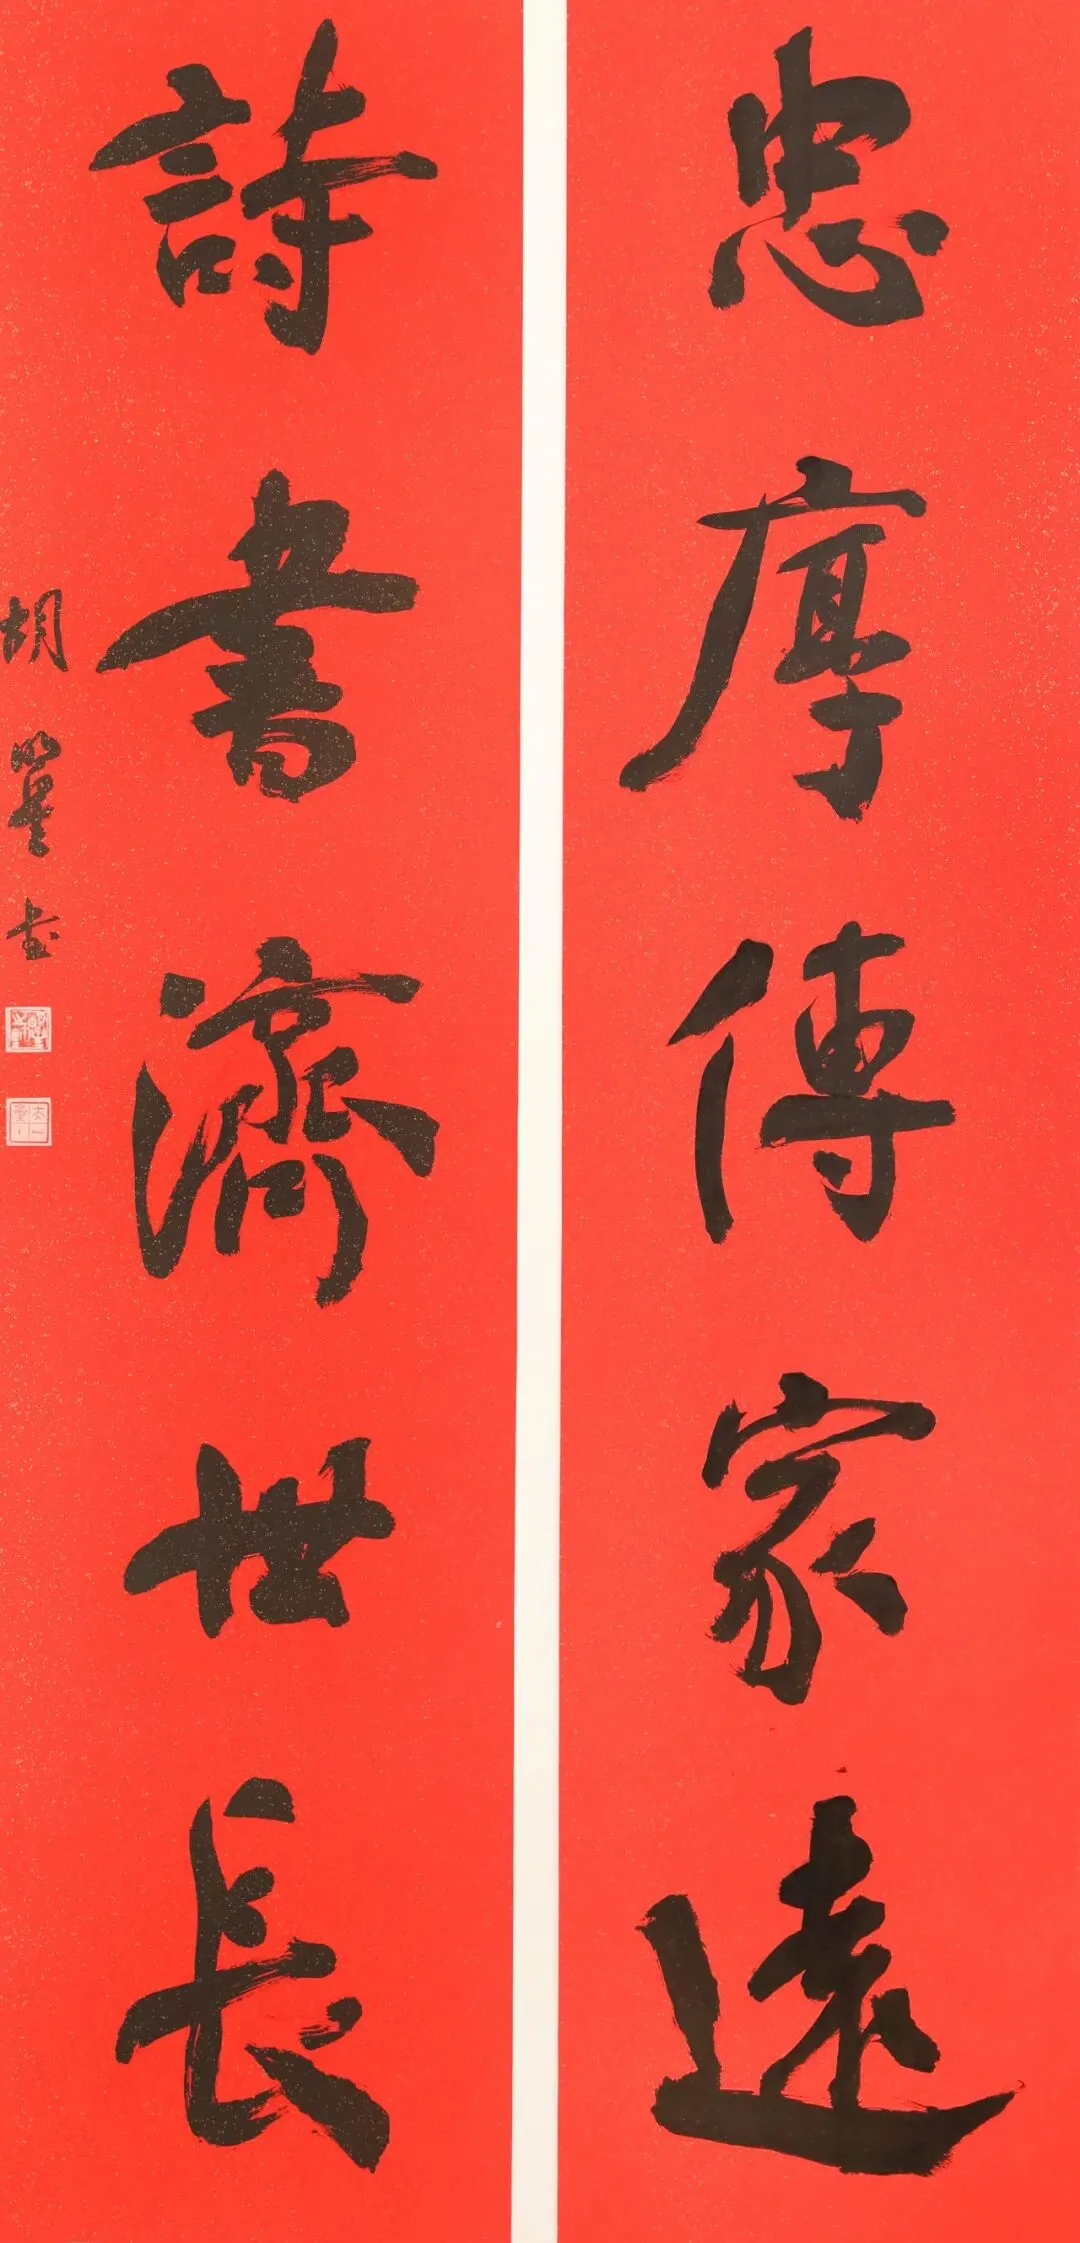 忠厚傳家遠
詩書濟世長
胡　　书